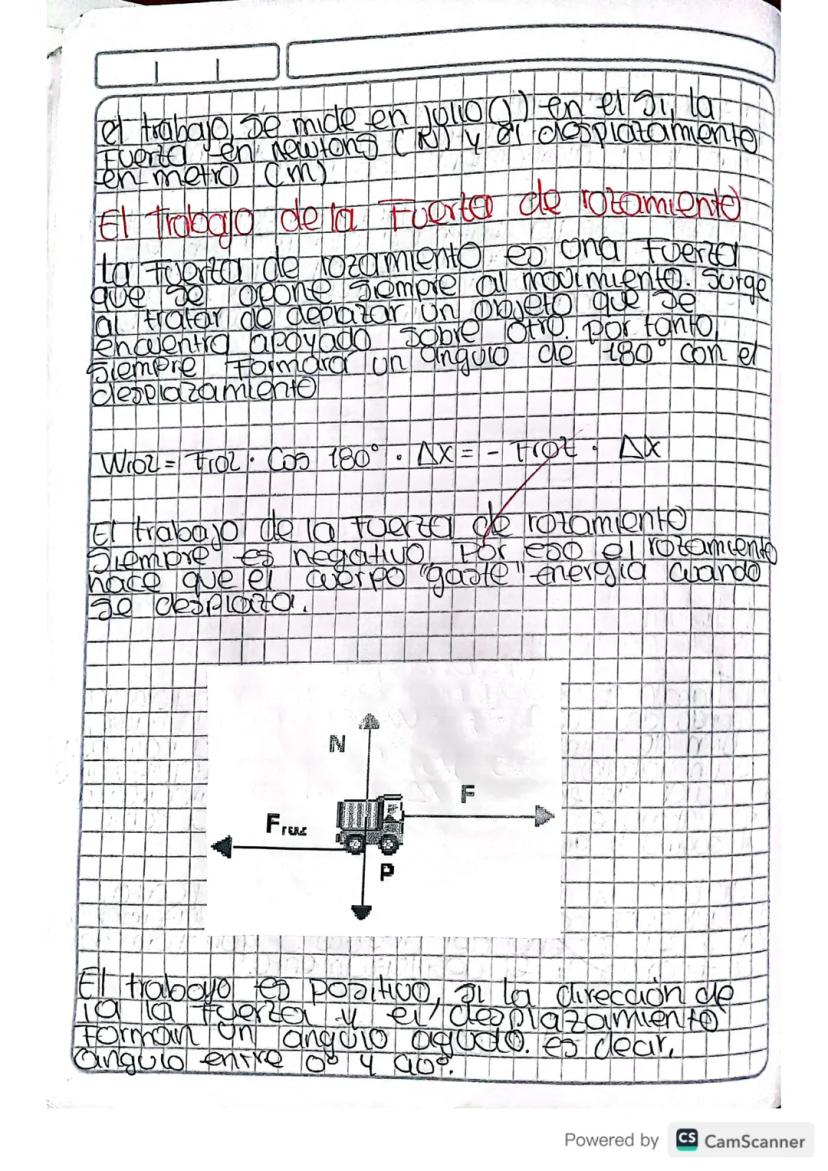 el trabajo, se mide en julio (J) en el SI, la
fuerza en newtons (N) y el desplazamiento
en metro (m)
El trabajo de la Fuerza de rozamiento
La fuerza de rozamiento es una fuerza
que se opone siempre al movimiento. Surge
al tratar de deplazar un objeto que se
encuentra apoyado sobre otro. por tanto,
siempre formara un ángulo de 180° con el
desplazamiento
Wroz = Froz · Cos 180° · Δx = - Froz · Δx
El trabajo de la fuerza de rozamiento
siempre es negativo por eso el rozamiento
hace que el cuerpo "gaste" energía cuando
se desplaza.
N
F
Froz
P
El trabajo es positivo, si la dirección de
la la fuerza y el desplazamiento
forman un angulo agudo. es decir,
angulo entre 0° y 90°.
Powered by CS CamScanner